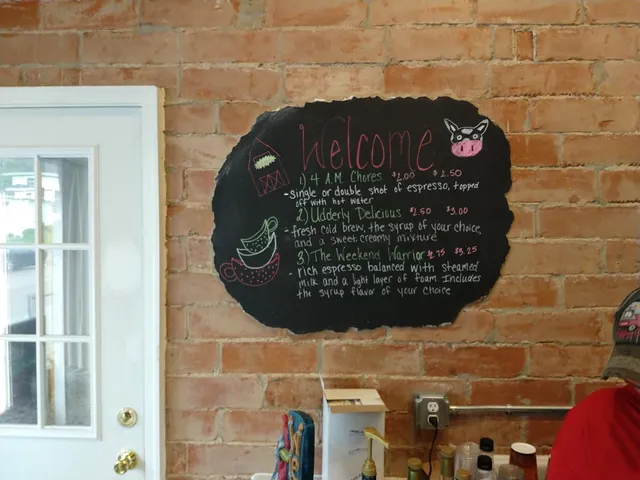 Welcome
1) 4 A.M. Chores $2.00 $2.50
- single or double shot of espresso, topped
off with hot water
2) Udderly Delicious $2.50 $3.00
- fresh cold brew, the syrup of your choice,
and a sweet creamy mixture
3) The Weekend Warrior $3.25
- rich espresso balanced with steamed
milk and a light layer of foam. Includes
the syrup flavor of your choice